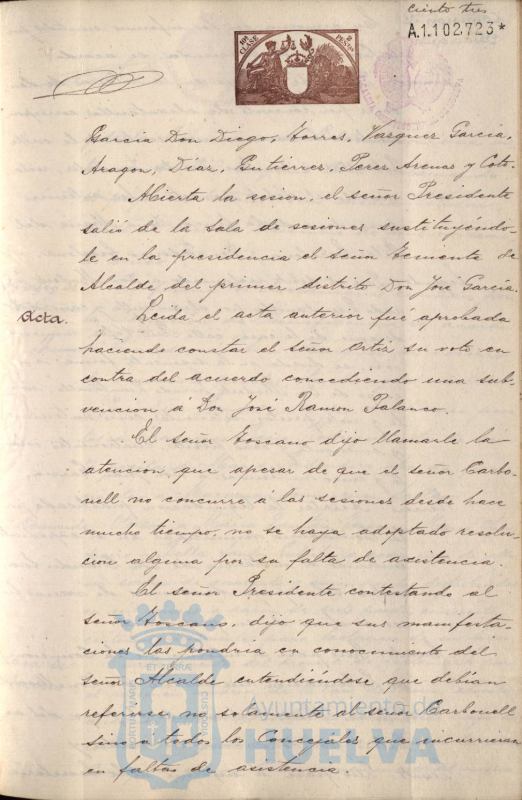 ciento tres
A.1.102.723*
10ª CLASE
2 PESETAS
Garcia Don Diogo, Torres, Vazquez Garcia,
Aragon, Diaz, Gutierrez, Perez Arenas y Coto.
Abierta la sesion, el señor Presidente
salió de la Sala de sesiones sustituyéndo-
le en la presidencia el señor Temente de
Alcalde del primer distrito Don José Garcia.
Acta.
Leida el acta anterior fué aprobada
haciendo constar el señor Ortiz su voto en
contra del acuerdo concediendo una sub-
vencion á Don José Ramon Palanco.
El señor Toscano dijo llamarle la
atencion que apesar de que el señor Carbo-
nell no concurre á las sesiones desde hace
mucho tiempo, no se haya adoptado resolu-
cion alguna por su falta de asistencia.
El señor Presidente contestando al
señor Toscano, dijo que sus manifesta-
ciones las pondria en conocimiento del
señor Alcalde entendiéndose que debian
referirse no solamente al señor Carbonell
sino a todos los Concejales que incurrieran
en faltas de asistencia.
Ayuntamiento de
HUELVA